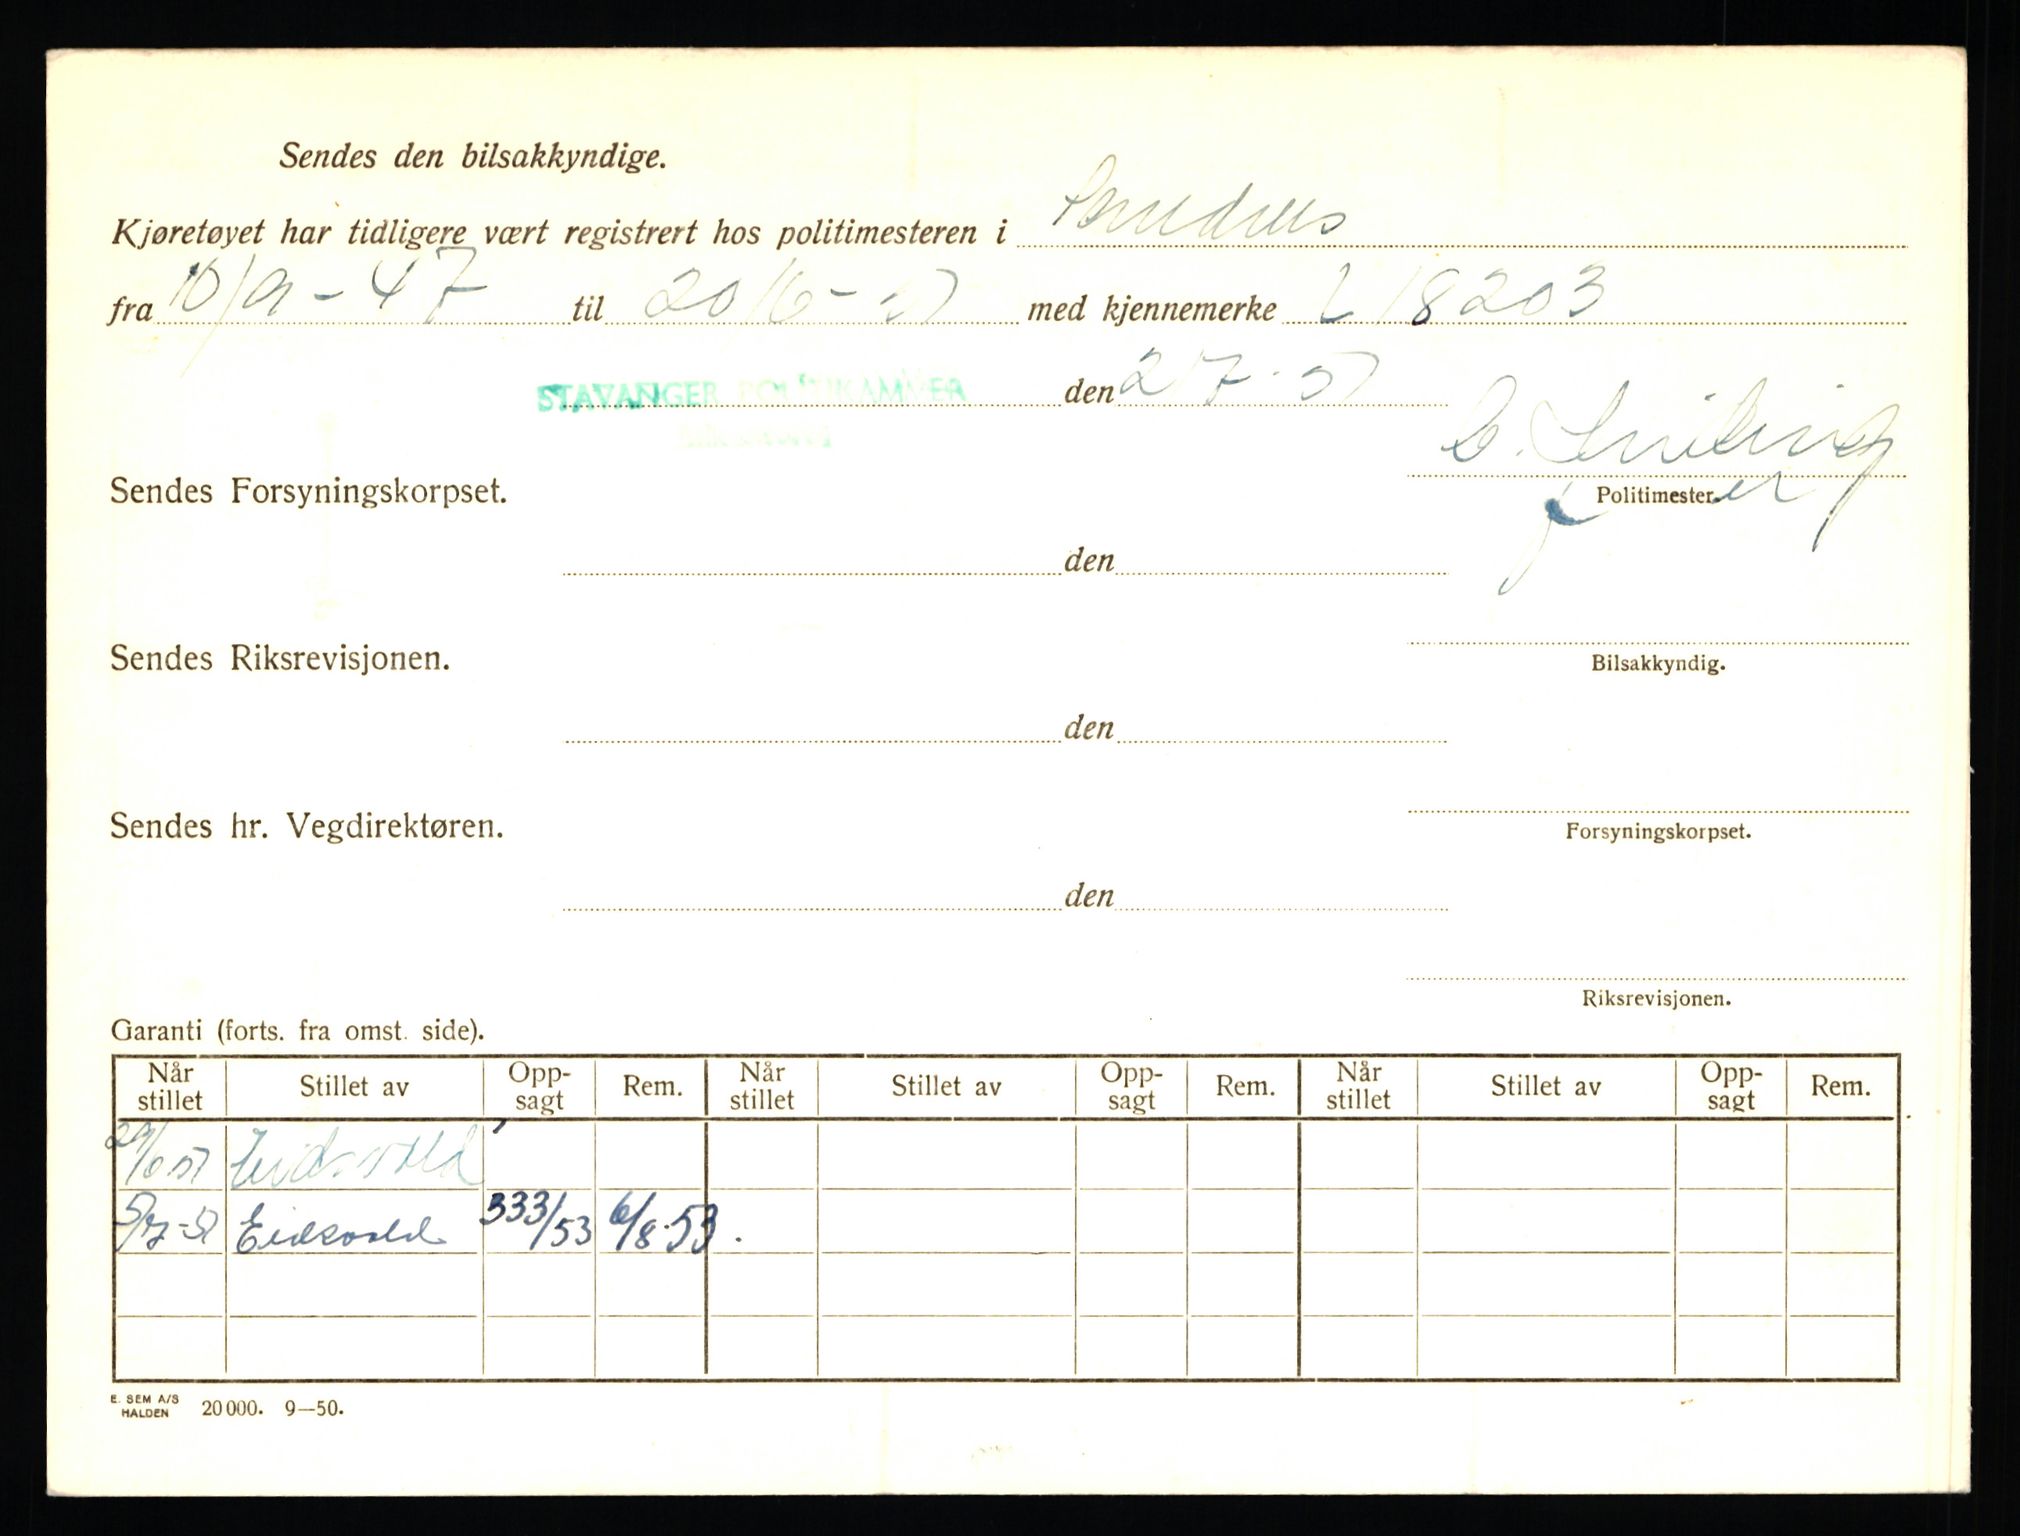 Sendes den bilsakkyndige.
Kjøretøyet har tidligere vært registrert hos politimesteren i Sandnes
fra 10/9-47 til 20/6-51 med kjennemerke L 18203
STAVANGER POLITIKAMMER den 2/7-51
Sendes Forsyningskorpset.
Politimester.
den
Sendes Riksrevisjonen.
Bilsakkyndig.
den
Sendes hr. Vegdirektøren.
Forsyningskorpset.
den
Riksrevisjonen.
Garanti (forts. fra omst. side).
Når stillet Stillet av Opp-sagt Rem. Når stillet Stillet av Opp-sagt Rem. Når stillet Stillet av Opp-sagt Rem.
29/6 51 Eidsvold
5/7-51 Eidsvold 333/53 6/8.53.
E. SEM A/S
HALDEN 20 000. 9—50.